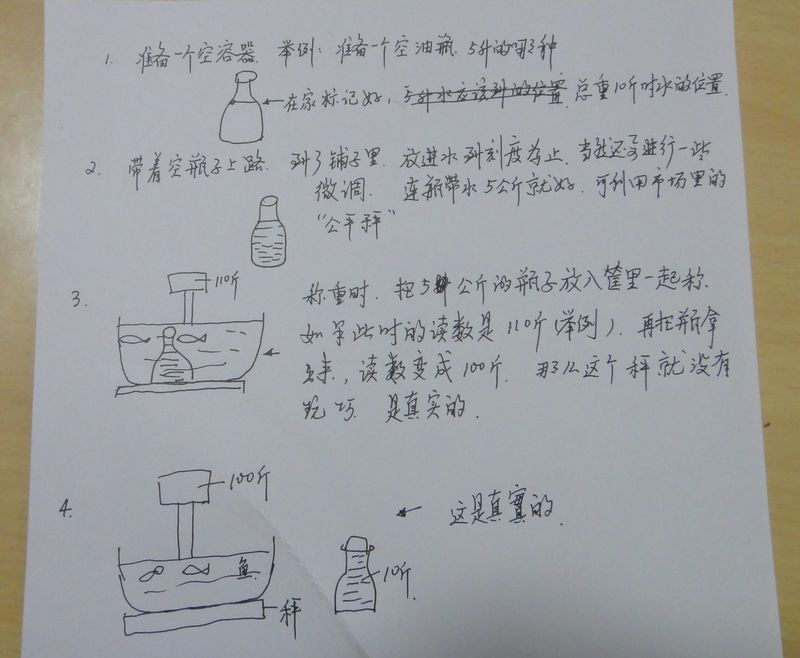 1. 准备一个空容器. 举例: 准备一个空油瓶. 5升的那种
在家标记好, 5升水应该到的位置. 总重10斤时水的位置.
2. 带着空瓶子上路. 到了铺子里. 放进水到刻度为止. 当然还可进行一些
微调. 连瓶带水5公斤就好. 可利用市场里的
“公平秤”
3.
110斤
称重时. 把5公斤的瓶子放入筐里一起称.
如果此时的读数是110斤(举例). 再把瓶拿
出来, 读数变成100斤. 那么这个秤就没有
玩巧. 是真实的.
4.
100斤
这是真實的.
鱼
10斤.
秤